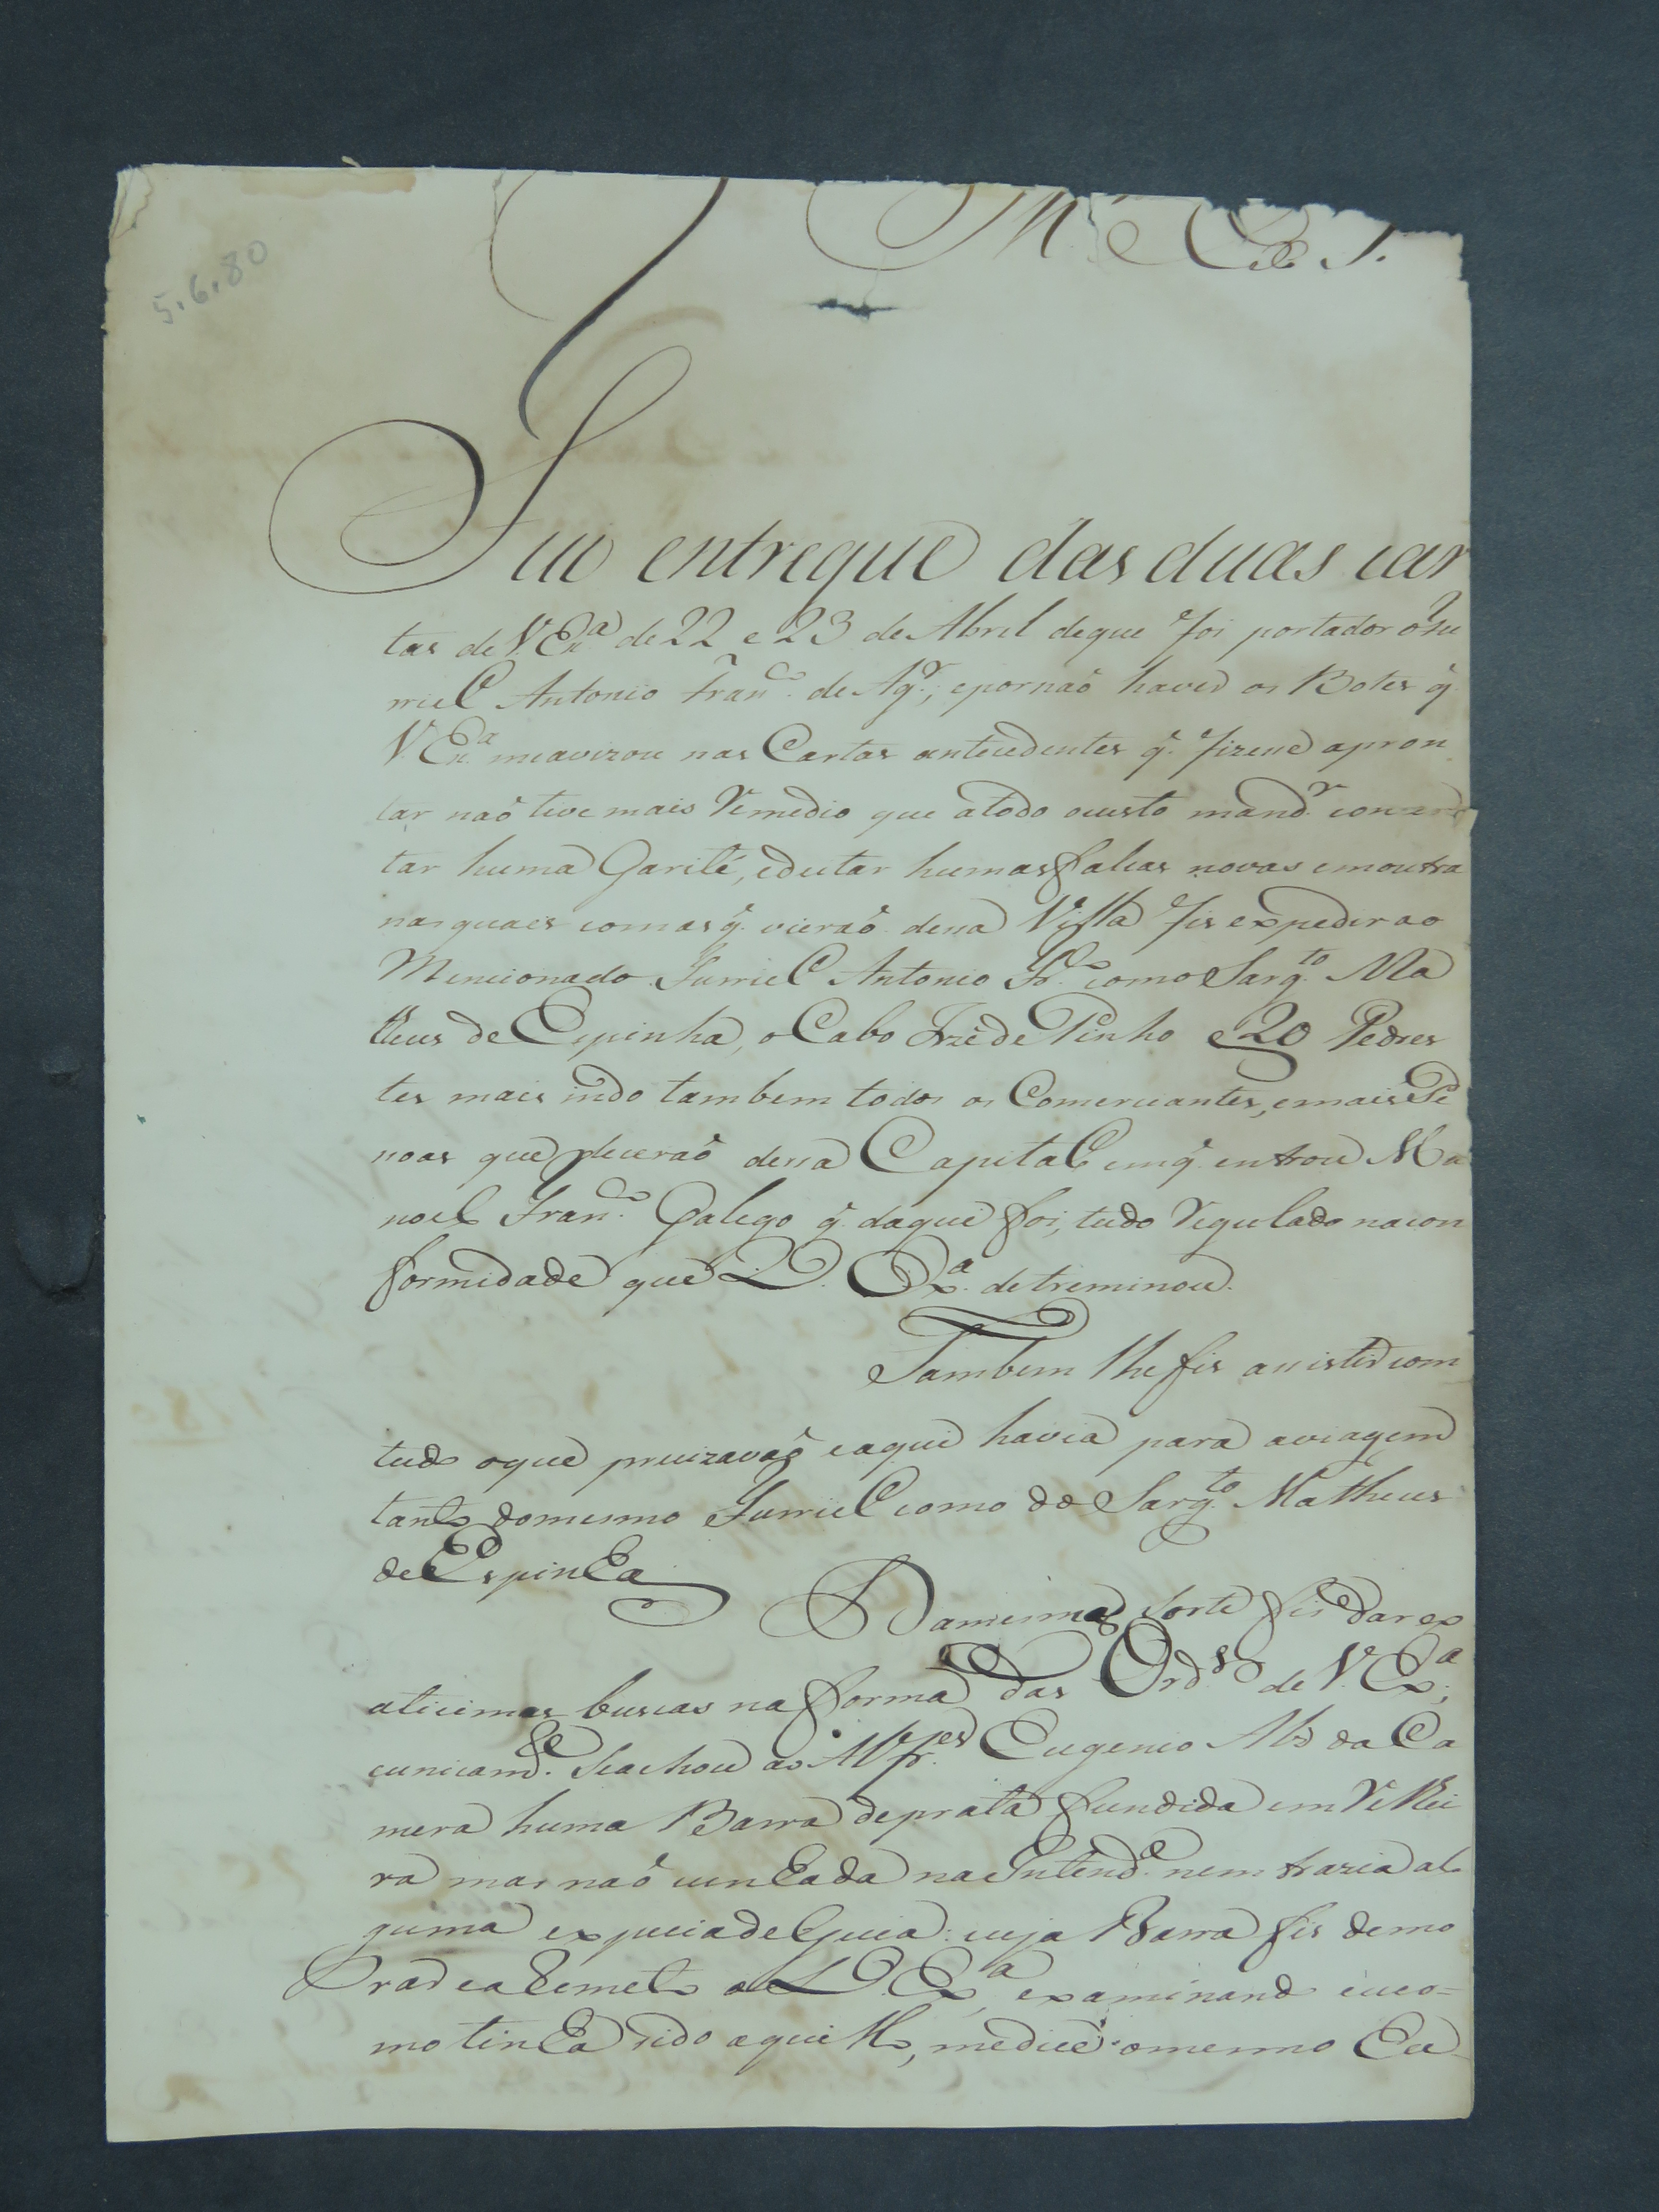 5.6.80
Fui entregue das duas car
tas de V. Exª de 22 e 23 de Abril deque foi portador o Fu
rriel Antonio Franco de Agr, epornaõ haver os Botes q̃
V. Exª meavizou nas Cartas antecedentes q̃ fizece apron
tar naõ tive mais Remedio que atodo ocusto mandr concer
tar huma Garité, edeitar humas falcas novas emoutra
nasquaes comasq̃ vieraõ dessa Villa fis expedir ao
Mencionado Furriel Antonio Frco como Sargto Ma
theus de Espinha, o Cabo Jozé de Pinho e 20 Pedres
tes mais indo tambem todos os Comerciantes, emais Pe
ssoas que deceraõ dessa Capital emq̃ entrou Ma
noel Franco Galego q̃ daque foi, tudo Regulado nacon
formidade que V. Exª detreminou.
Tambem lhe fis assistir com
tudo oque precizavaõ eaqui havia para aviagem
tanto domesmo Furriel como do Sargto Matheus
de Espinha
Damesma Sorte fis dar ex
aticimas buscas na forma das Ords de V. Exª,
eunicamde Seachou ao Alfres Eugenio Alz da Ca
mera huma Barra deprata fundida em Ribei
ra mas naõ cunhada na Intendª nem trazia al
guma expecia de Guia: cuja Barra fis demo
rar ea Remeto a V. Exª, examinando eu co=
mo tinha sido aquillo, medice omesmo Eu